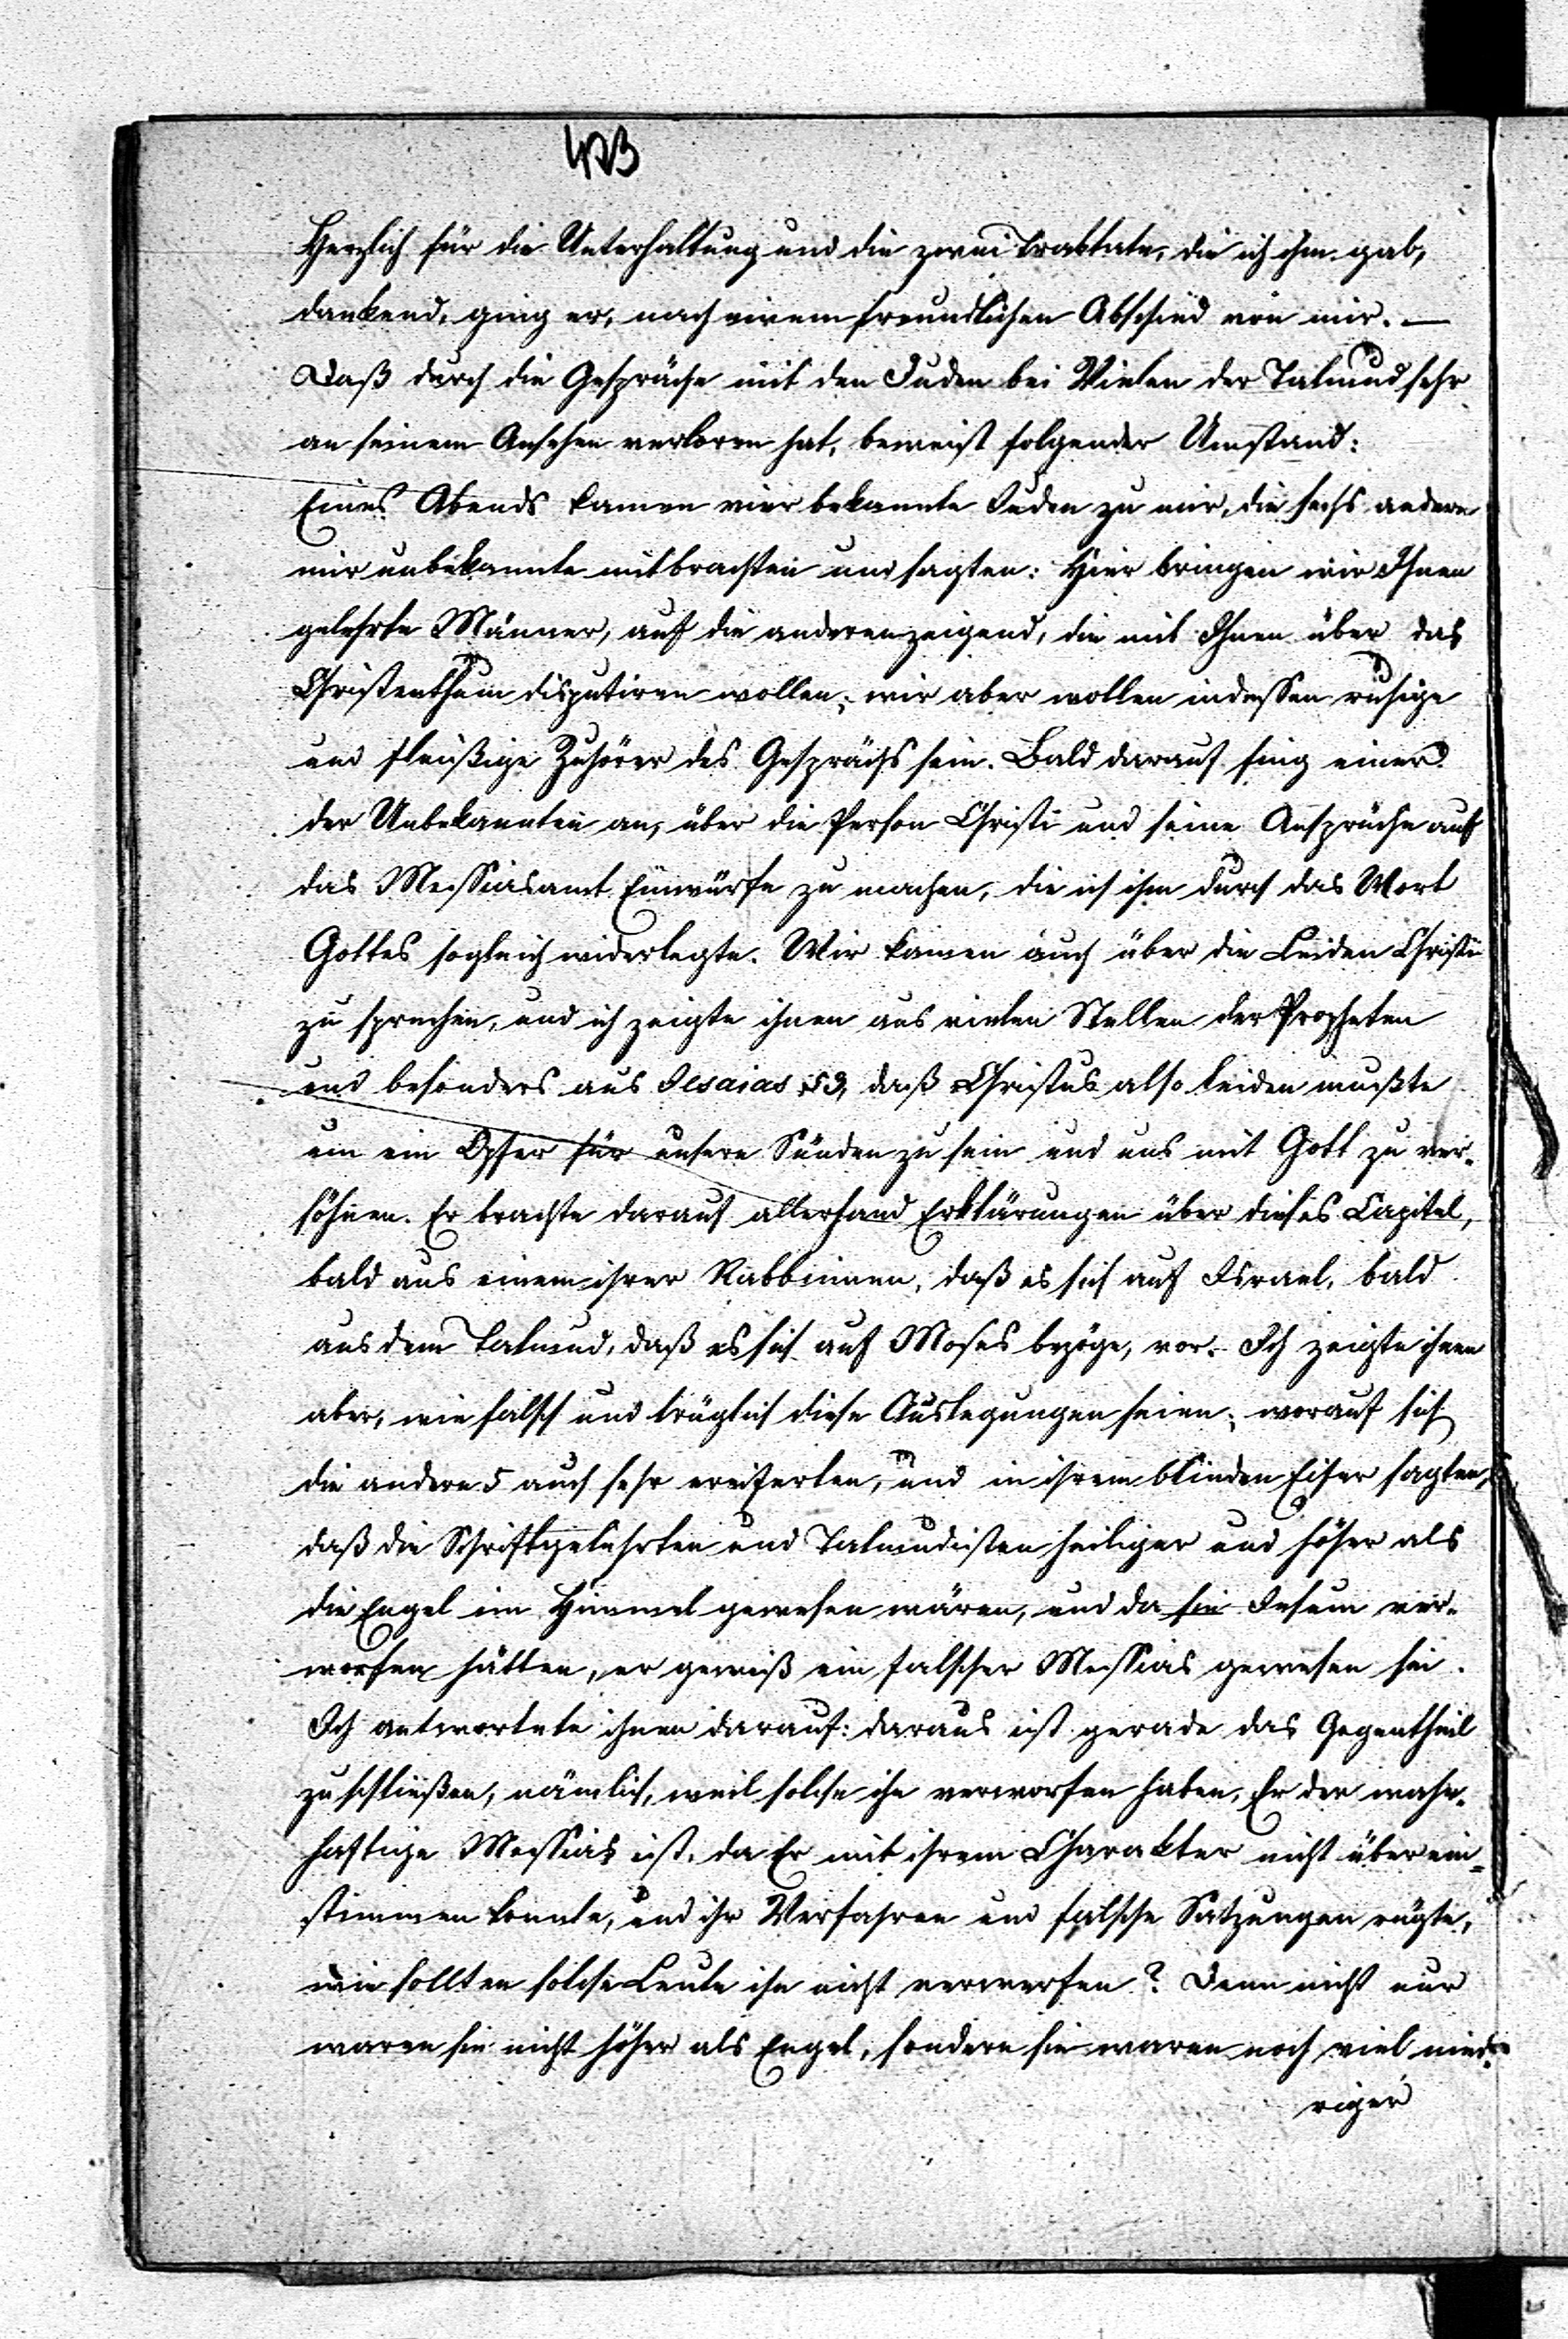 423
Herzlich für die Unterhaltung und die zwei Traktate, die ich ihm gab,
dankend, ging er, nach einem freundlichen Abschied von mir. —
Daß durch die Gespräche mit den Juden bei Vielen der Talmud sehr
an seinem Ansehen verloren hat, beweist folgender Umstand:
Eines Abends kamen vier bekannte Juden zu mir, die sechs andere
mir unbekannte mitbrachten und sagten: Hier bringen wir Ihnen
gelehrte Männer, auf die anderen zeigend, die mit Ihnen über das
Christenthum disputiren wollen; wir aber wollen indessen ruhige
und fleißige Zuhörer des Gesprächs sein. Bald darauf fing einer
der Unbekannten an, über die Person Christi und seine Ansprüche auf
das Messiasamt Einwürfe zu machen, die ich ihm durch das Wort
Gottes sogleich widerlegte. Wir kamen auch über die Leiden Christi
zu sprechen, und ich zeigte ihnen aus vielen Stellen der Propheten
und besonders aus Jesaias 53, daß Christus also leiden mußte
um ein Opfer für unsere Sünden zu sein und uns mit Gott zu ver-
söhnen. Er brachte darauf allerhand Erklärungen über dieses Capitel,
bald aus einem ihrer Rabbinnen, daß es sich auf Israel, bald
aus dem Talmud, daß es sich auf Moses bezöge, vor. Ich zeigte ihnen
aber, wie falsch und trüglich diese Auslegungen seien; worauf sich
die andern 5 auch sehr ereiferten, und in ihrem blinden Eifer sagten,
daß die Schriftgelehrten und Talmudisten heiliger und höher als
die Engel im Himmel gewesen wären, und da sie Jesum ver-
worfen hätten, er gewiß ein falscher Messias gewesen sei.
Ich antwortete ihnen darauf: daraus ist gerade das Gegentheil
zu schließen, nämlich, weil solche ihn verworfen haben, Er der wahr-
haftige Messias ist, da Er mit ihrem Charakter nicht überein-
stimmen konnte, und ihr Verfahren und falsche Satzungen rügte,
wie sollten solche Leute ihn nicht verwerfen? Denn nicht nur
waren sie nicht höher als Engel, sondern sie waren noch viel nied-
riger